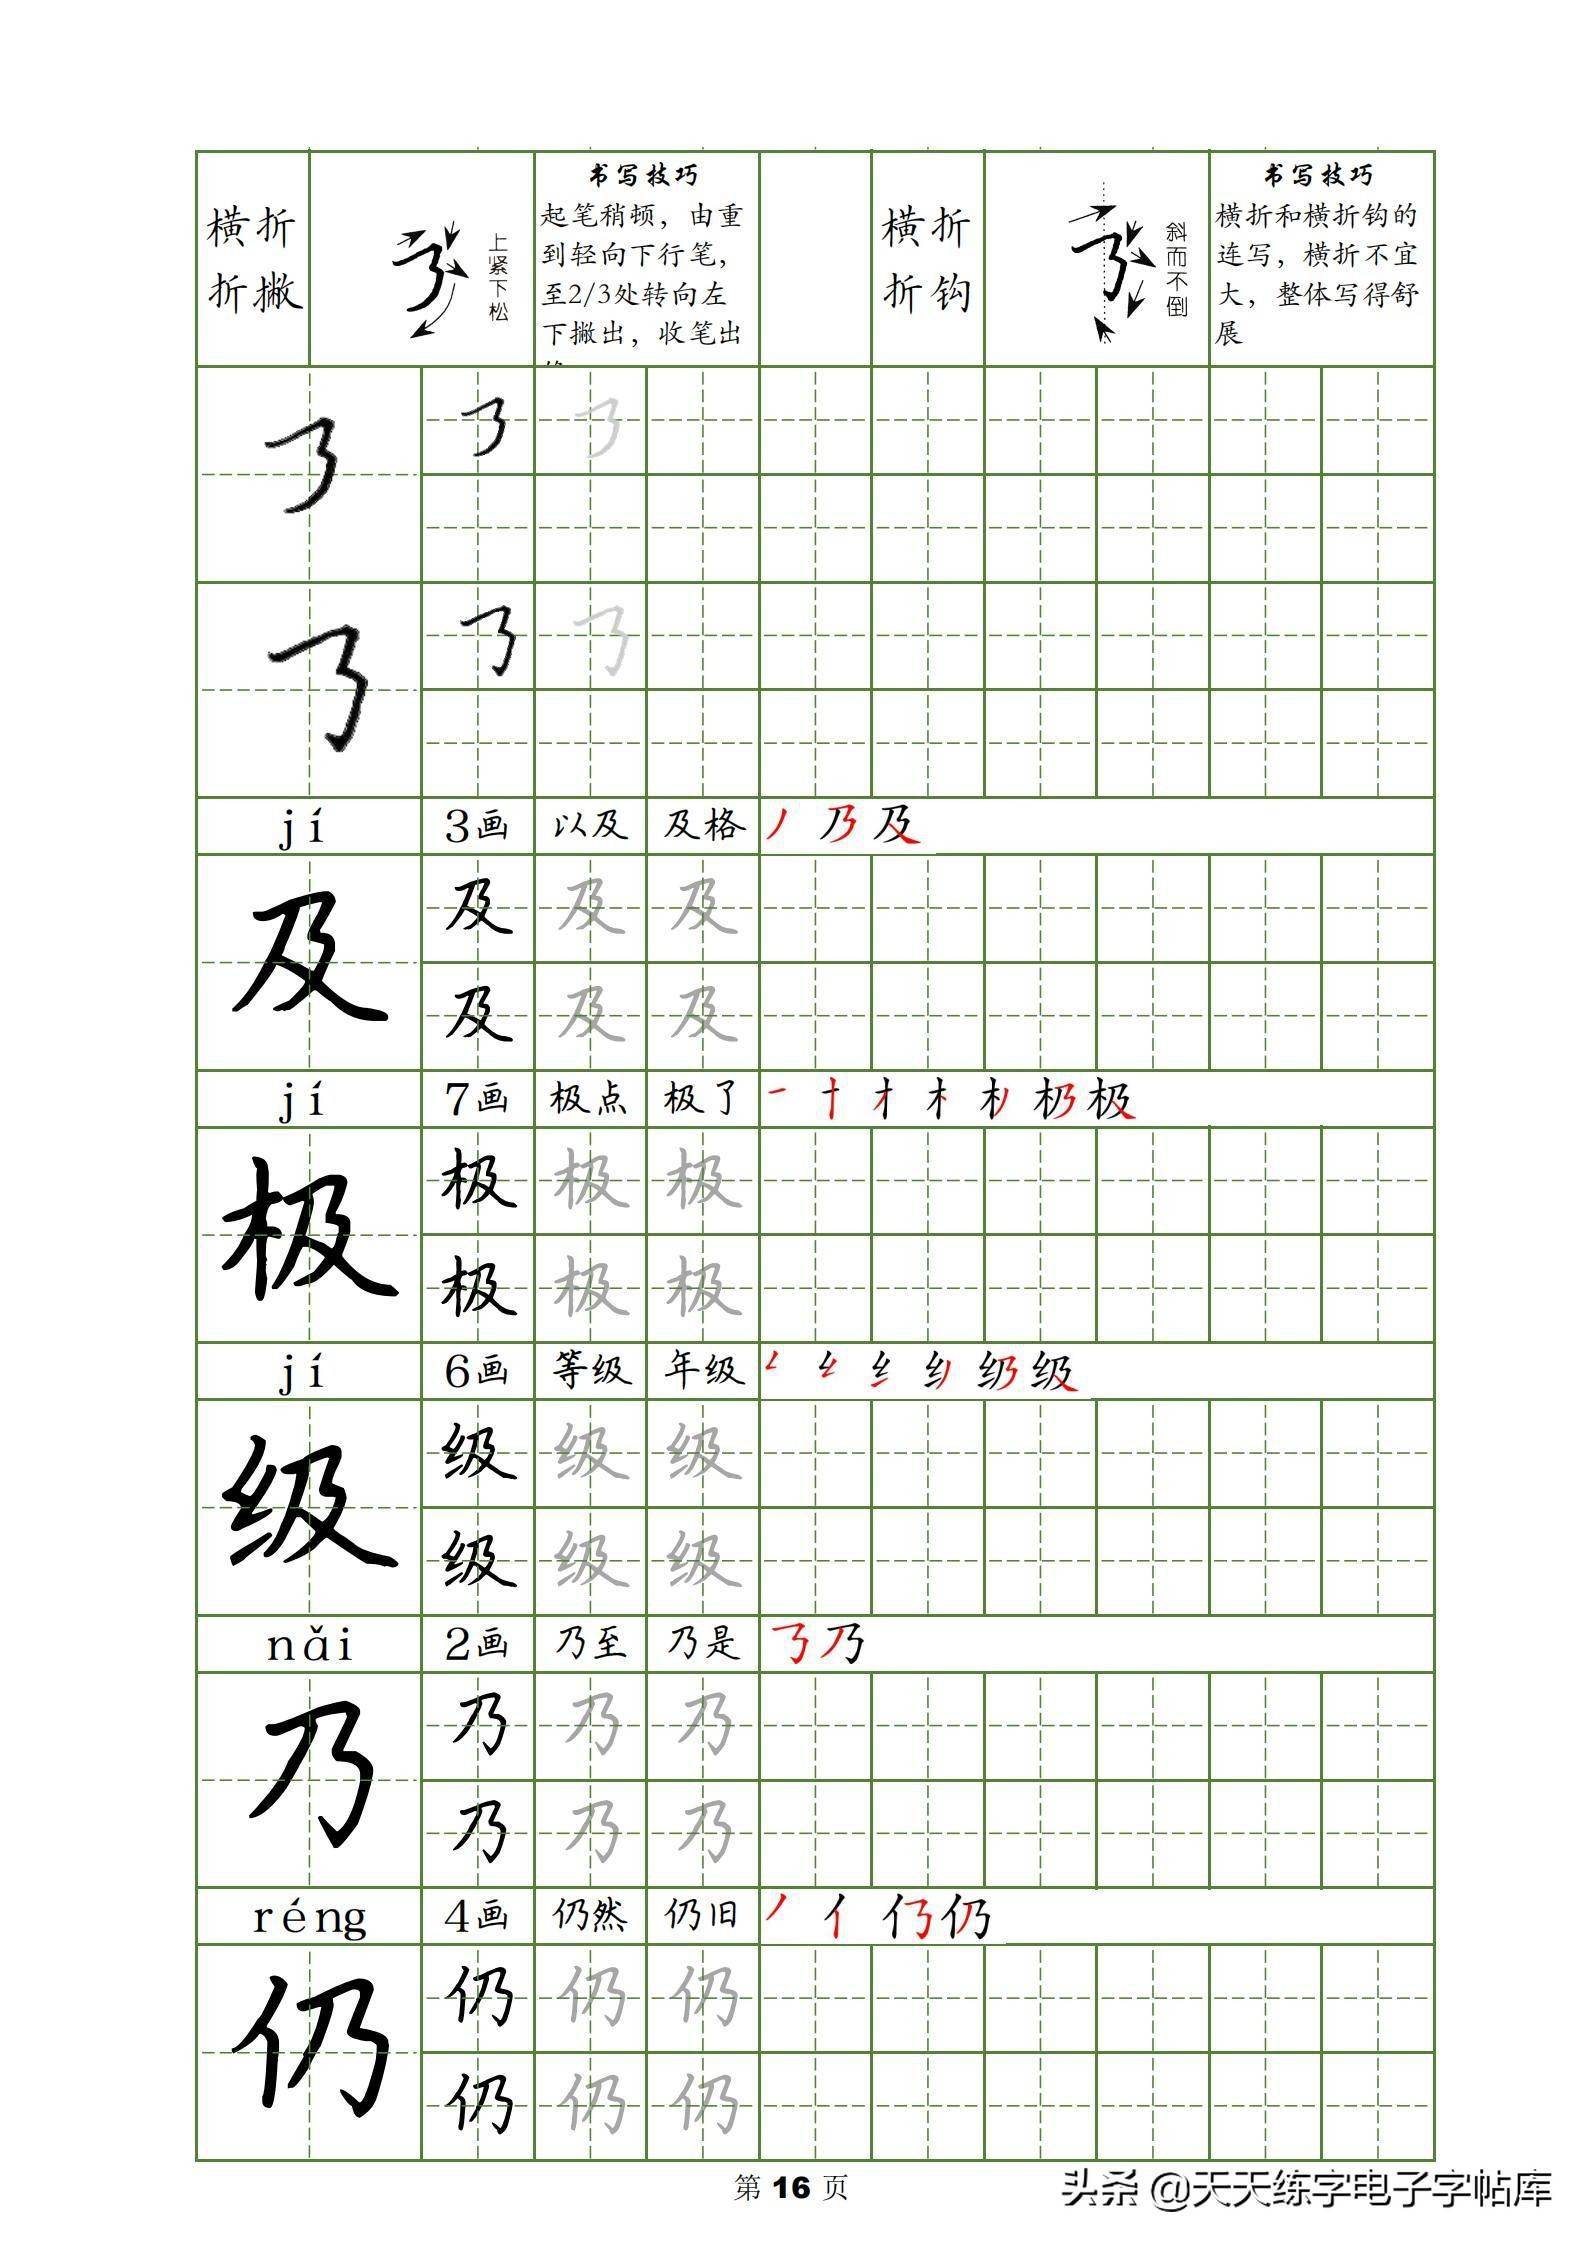 横折
折撇
上紧下松
书写技巧
起笔稍顿，由重
到轻向下行笔，
至2/3处转向左
下撇出，收笔出
横折
折钩
斜而不倒
书写技巧
横折和横折钩的
连写，横折不宜
大，整体写得舒
展
jí 3画 以及 及格 丿 乃 及
及 及 及 及
及 及 及
jí 7画 极点 极了 一 十 才 木 极
极 极 极 极
极 极 极
jí 6画 等级 年级 纟 级
级 级 级 级
级 级 级
nǎi 2画 乃至 乃是 乃
乃 乃 乃 乃
乃 乃 乃
réng 4画 仍然 仍旧 丿 亻 仍
仍 仍 仍 仍
仍 仍 仍
第 16 页
头条 @天天练字电子字帖库